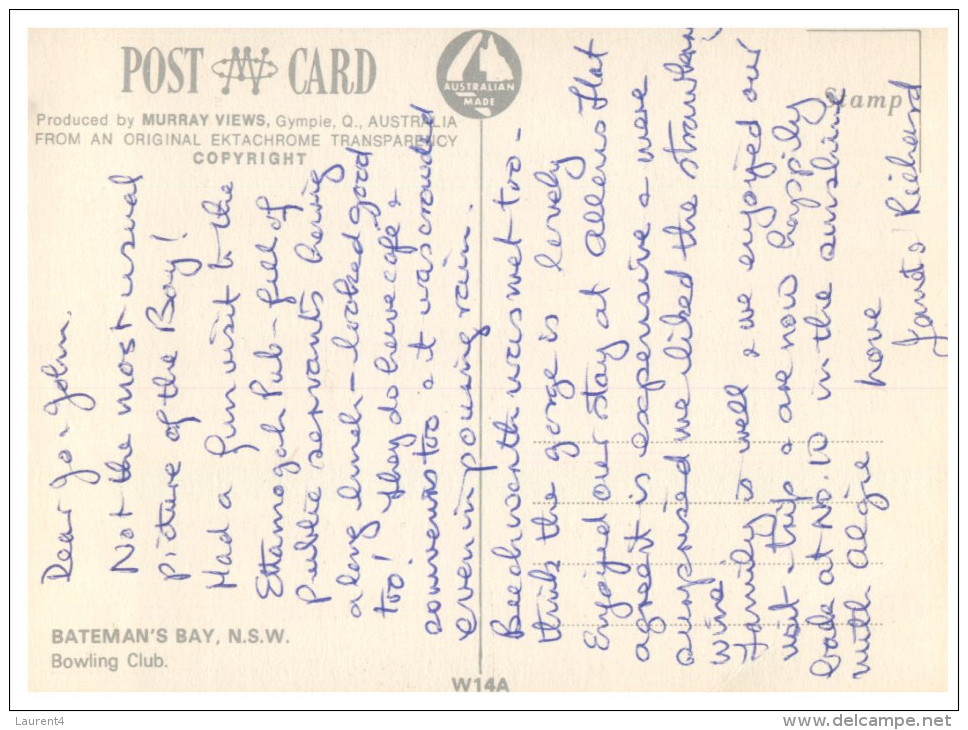 POST CARD
AUSTRALIAN
MADE
Produced by MURRAY VIEWS, Gympie, Q., AUSTRALIA
FROM AN ORIGINAL EKTACHROME TRANSPARENCY
COPYRIGHT
Stamp
BATEMAN'S BAY, N.S.W.
Bowling Club.
W14A
Dear Jo & John.
Not the most usual
picture of the Bay!
Had a fun visit to the
Ettamogah Pub - full of
Public servants having
a long lunch - looked good
too! They do have cafe &
souvenirs too & it was crowded
even in pouring rain.
Beechworth was wet too -
think the gorge is lovely
Enjoyed our stay at Allens Flat
agree it is expensive & were
surprised we liked the strawberry
wine!
Family is well & we enjoyed our
visit - trip & are now happily
back at No. 10 in the sunshine
with Algie
Love
Janet & Richard
Laurent4
www.delcampe.net